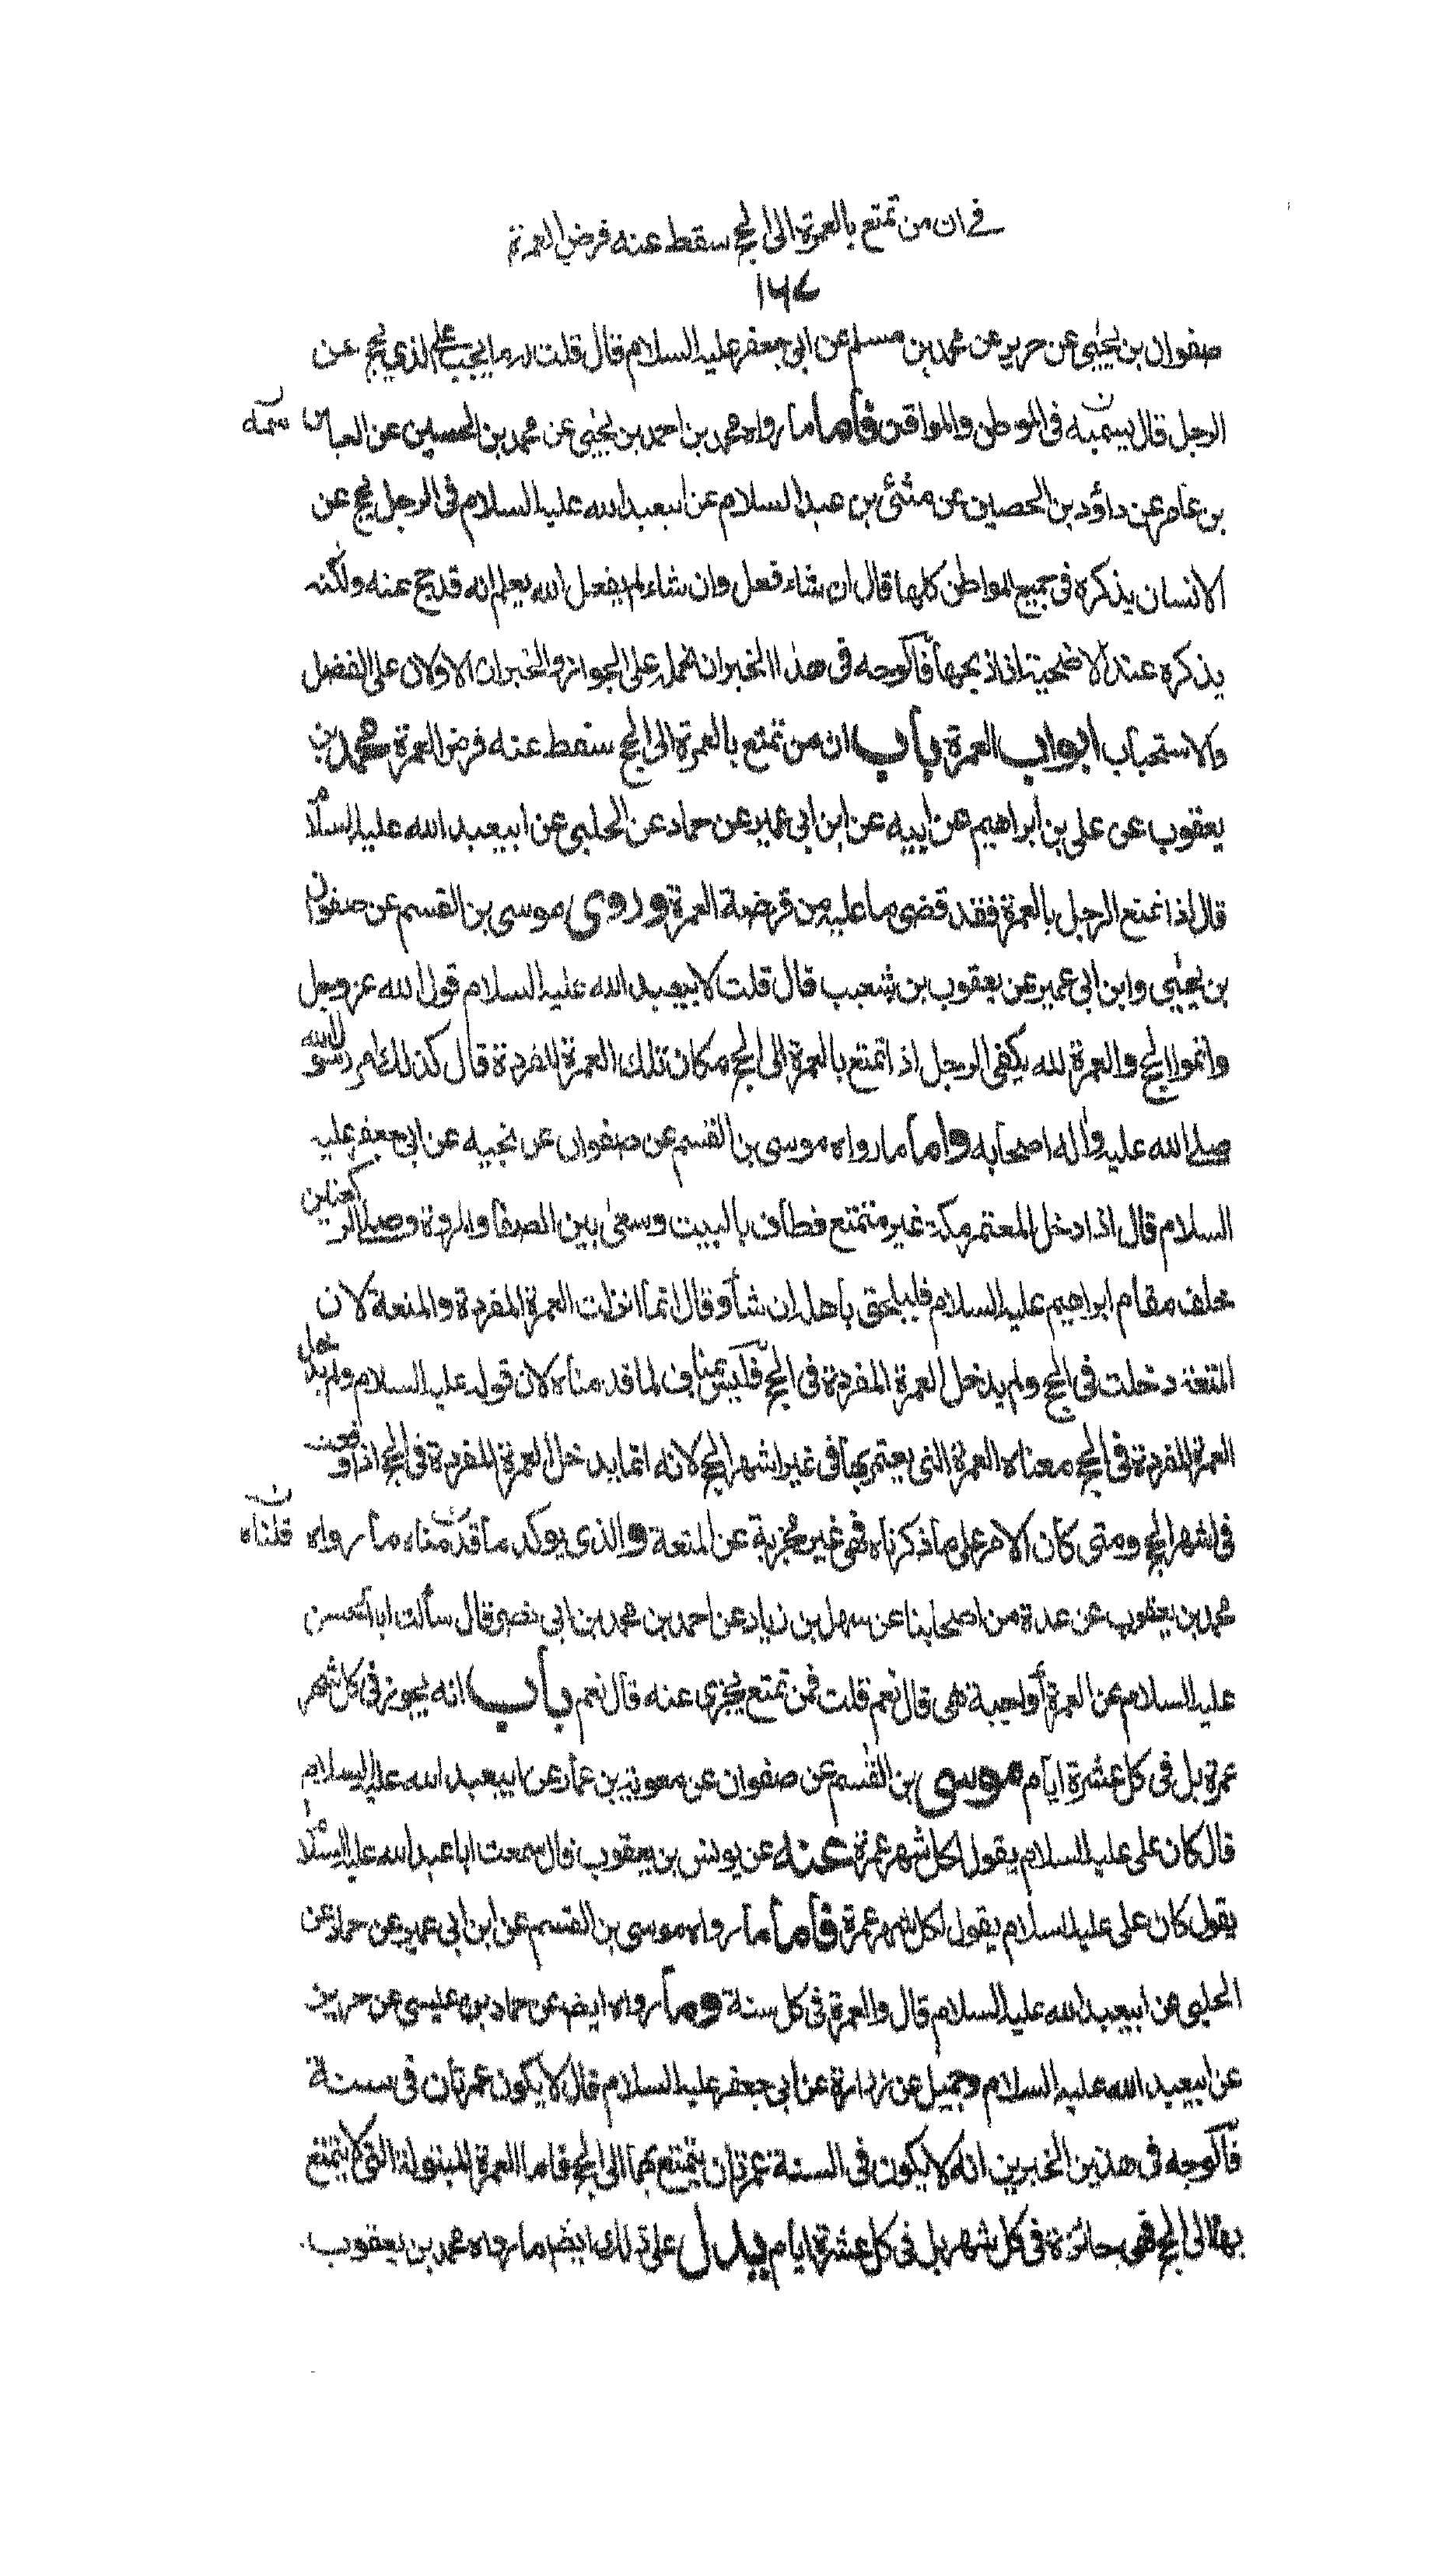 في ان من تمتع بالعمرة الى الحج سقط عنه فرض العمرة
١٦٤
صفوان بن يحيى عن حريز عن محمد بن مسلم عن ابى جعفر عليه السلام قال قلت له ما يجب على الذي يحج عن
الرجل قال يسميه في المواطن والمواقف فأما ما رواه محمد بن احمد بن يحيى عن محمد بن الحسين عن العباس
بن عامر عن داود بن الحصين عن مثنى بن عبد السلام عن ابيعبد الله عليه السلام في الرجل يحج عن
الانسان يذكره في جميع المواطن كلها قال ان شاء فعل وان شاء لم يفعل الله يعلم انه قد حج عنه ولكنه
يذكره عند الاضحية اذا ذبحها فالوجه في هذا الخبر ان نحمله على الجواز والخبران الاولان على الفضل
والاستحباب ابواب العمرة باب ان من تمتع بالعمرة الى الحج سقط عنه فرض العمرة محمد بن
يعقوب عن علي بن ابراهيم عن ابيه عن ابن ابى عمير عن حماد عن الحلبى عن ابيعبد الله عليه السلام
قال اذا تمتع الرجل بالعمرة فقد قضى ما عليه من فريضة العمرة وروى موسى بن القسم عن صفوان
بن يحيى وابن ابى عمير عن يعقوب بن شعيب قال قلت لابيعبد الله عليه السلام قول الله عز وجل
واتموا الحج والعمرة لله يكفى الرجل اذا تمتع بالعمرة الى الحج مكان تلك العمرة المفردة قال كذلك امر رسول الله
صلى الله عليه واله اصحابه واما ما رواه موسى بن القسم عن صفوان عن نجيه عن ابى جعفر عليه
السلام قال اذا دخل المعتمر مكة غير متمتع فطاف بالبيت وسعى بين الصفا والمروة وصلى الركعتين
خلف مقام ابراهيم عليه السلام فليلحق باهله ان شاء وقال انما انزلت العمرة المفردة والمتعة لان
المتعة دخلت في الحج ولم يدخل العمرة المفردة في الحج فليس مناف لما قدمناه لان قوله عليه السلام ولم يدخل
العمرة المفردة في الحج معناه العمرة التى يعتمر بها في غير اشهر الحج لانه انما يدخل العمرة المفردة في الحج اذا وقعت
في اشهر الحج ومتى كان الامر على ما ذكرناه فهى غير مجزية عن المتعة والذى يوكد ما قدمناه ما رواه قلناه
محمد بن يعقوب عن عدة من اصحابنا عن سهل بن زياد عن احمد بن محمد بن ابى نصر قال سألت ابا الحسن
عليه السلام عن العمرة أواجبة هى قال نعم قلت فمن تمتع يجزى عنه قال نعم باب انه يجوز في كل شهر
عمرة بل في كل عشرة ايام موسى بن القسم عن صفوان عن معوية بن عمار عن ابيعبد الله عليه السلام
قال كان على عليه السلام يقول لكل شهر عمرة عنه عن يونس بن يعقوب قال سمعت ابا عبد الله عليه السلام
يقول كان على عليه السلام يقول لكل شهر عمرة فأما ما رواه موسى بن القسم عن ابن ابى عمير عن حماد عن
الحلبى عن ابيعبد الله عليه السلام قال والعمرة في كل سنة وما رواه ايضا عن حماد بن عيسى عن حريز
عن ابيعبد الله عليه السلام وجميل عن زرارة عن ابى جعفر عليه السلام قال لا يكون عمرتان في سنة
فالوجه في هذين الخبرين انه لا يكون في السنة عمرتان يتمتع بهما الى الحج فاما العمرة المبتولة التى لا يتمتع
بها الى الحج فهى جائزة في كل شهر بل في كل عشرة ايام يدل على ذلك ايضا ما رواه محمد بن يعقوب